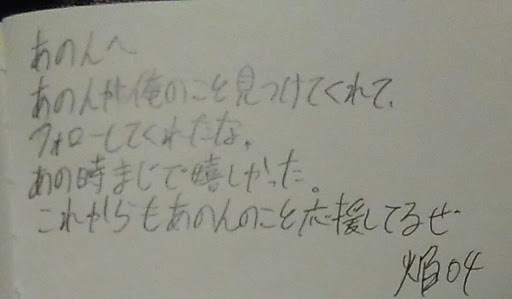 あのんへ
あのんが俺のこと見つけてくれて、
フォローしてくれたな。
あの時まじで嬉しかった。
これからもあのんのこと応援してるぜ
焔04